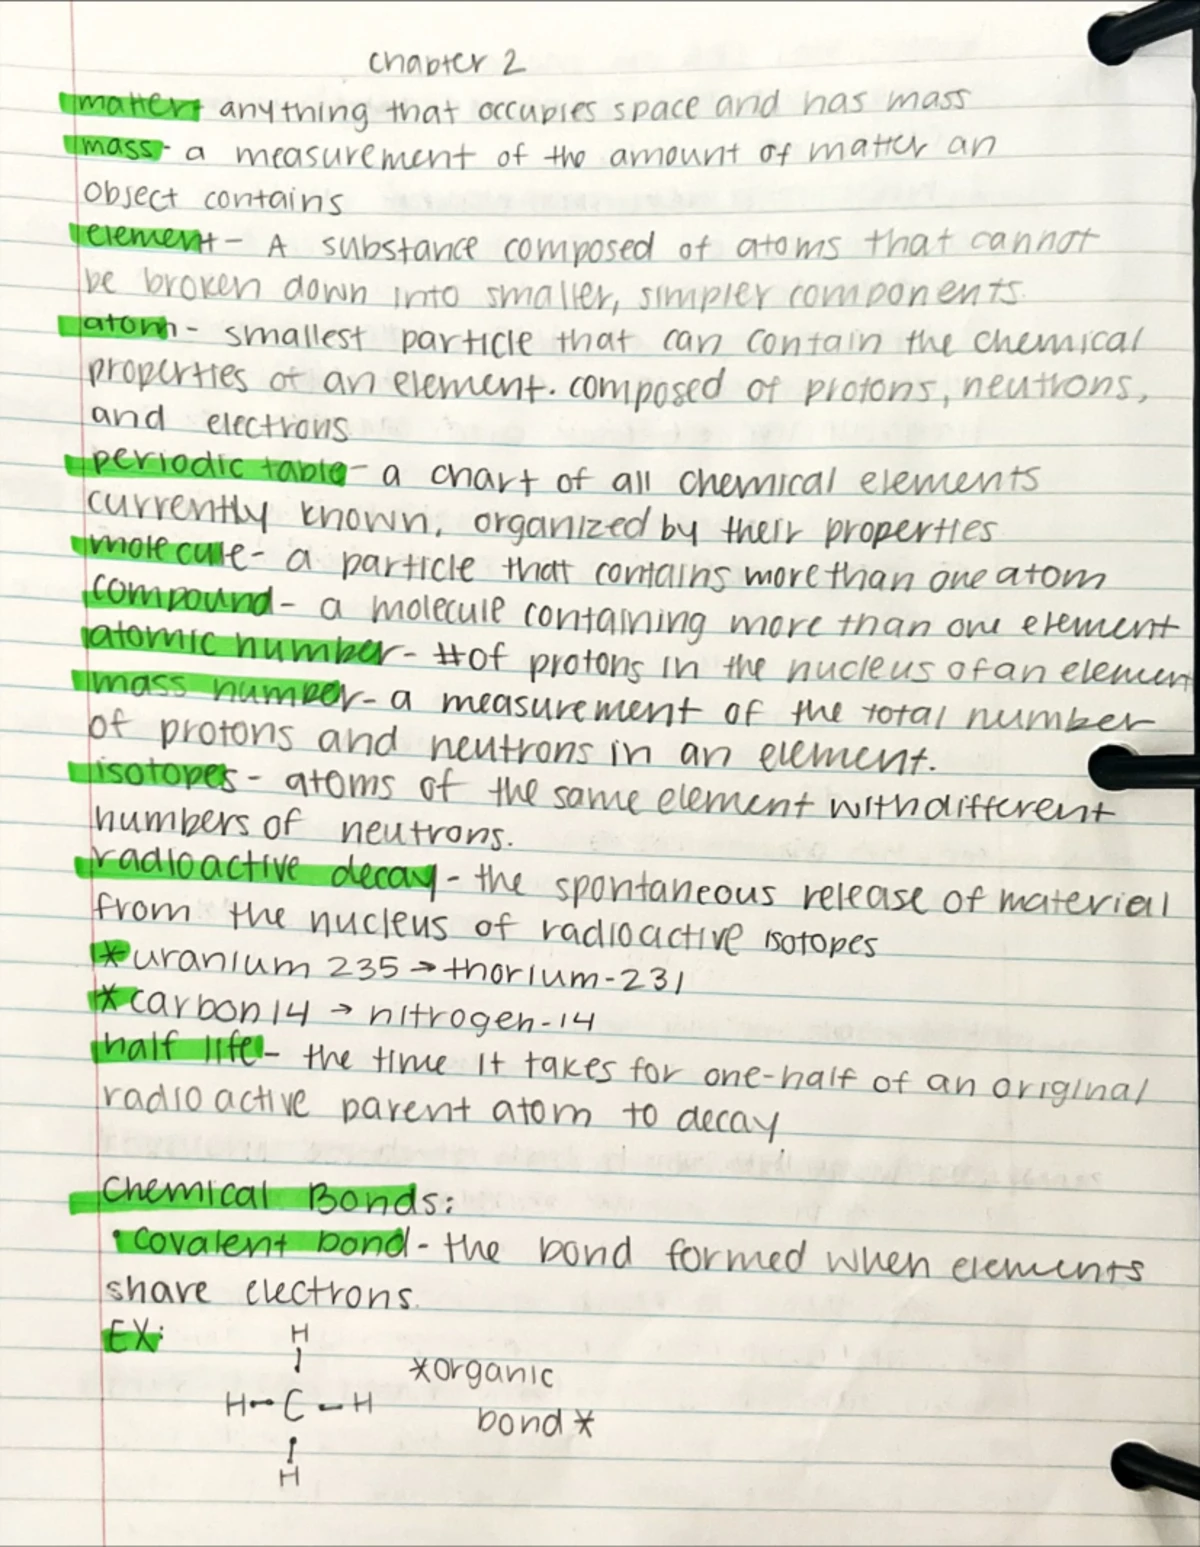 chapter 2
matter- anything that occupies space and has mass
mass- a measurement of the amount of matter an
object contains
element- A substance composed of atoms that cannot
be broken down into smaller, simpler components.
atom- smallest particle that can contain the chemical
properties of an element. composed of protons, neutrons,
and electrons
periodic table- a chart of all chemical elements
currently known, organized by their properties
molecule- a particle that contains more than one atom
compound- a molecule containing more than one element
atomic number- # of protons in the nucleus of an element
mass number- a measurement of the total number
of protons and neutrons in an element.
isotopes- atoms of the same element with different
numbers of neutrons.
radioactive decay- the spontaneous release of material
from the nucleus of radioactive isotopes
*uranium 235 → thorium-231
*carbon 14 → nitrogen-14
half life- the time it takes for one-half of an original
radioactive parent atom to decay
Chemical Bonds:
• Covalent bond- the bond formed when elements
share electrons.
EX:
H
*organic
H-C-H
bond*
H